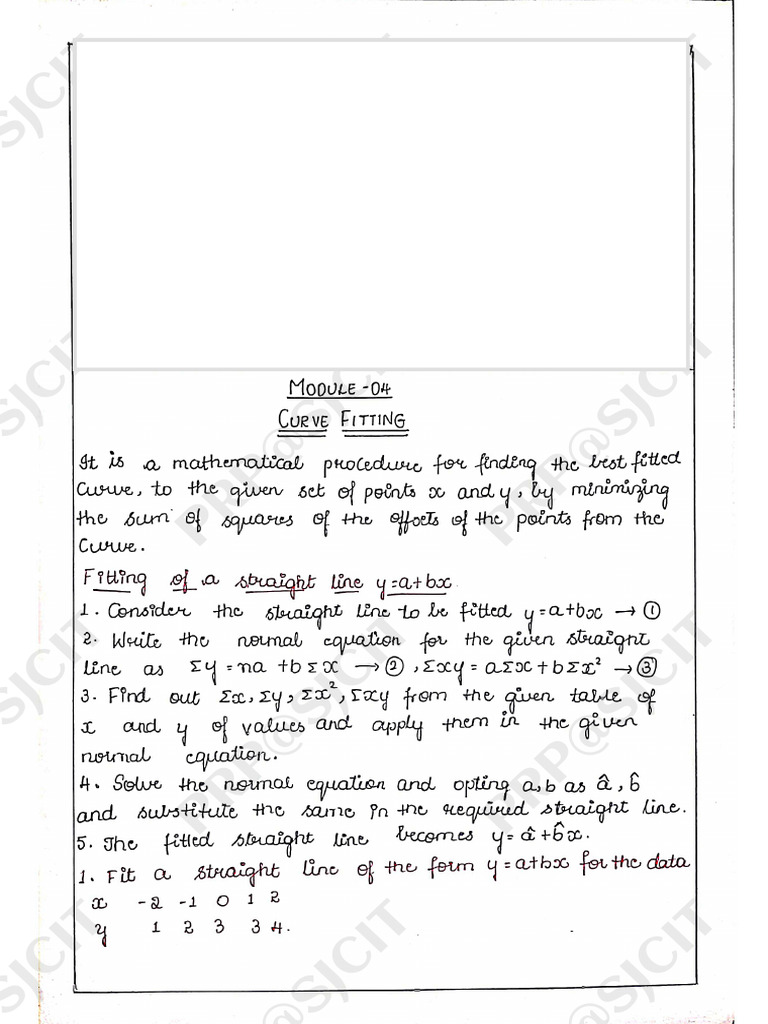 MODULE-04
CURVE FITTING
It is a mathematical procedure for finding the best fitted
Curve, to the given set of points x and y, by minimizing
the sum of squares of the offsets of the points from the
Curve.
Fitting of a straight line y=a+bx
1. Consider the straight line to be fitted y=a+bx → ①
2. Write the normal equation for the given straight
line as Σy = na + bΣx → ②, Σxy = aΣx + bΣx² → ③
3. Find out Σx, Σy, Σx², Σxy from the given table of
x and y of values and apply them in the given
normal equation.
4. Solve the normal equation and opting a, b as â, b̂
and substitute the same in the required straight line.
5. The fitted straight line becomes y = â + b̂x.
1. Fit a straight line of the form y=a+bx for the data
x -2 -1 0 1 2
y 1 2 3 3 4.
PRP@SJCIT